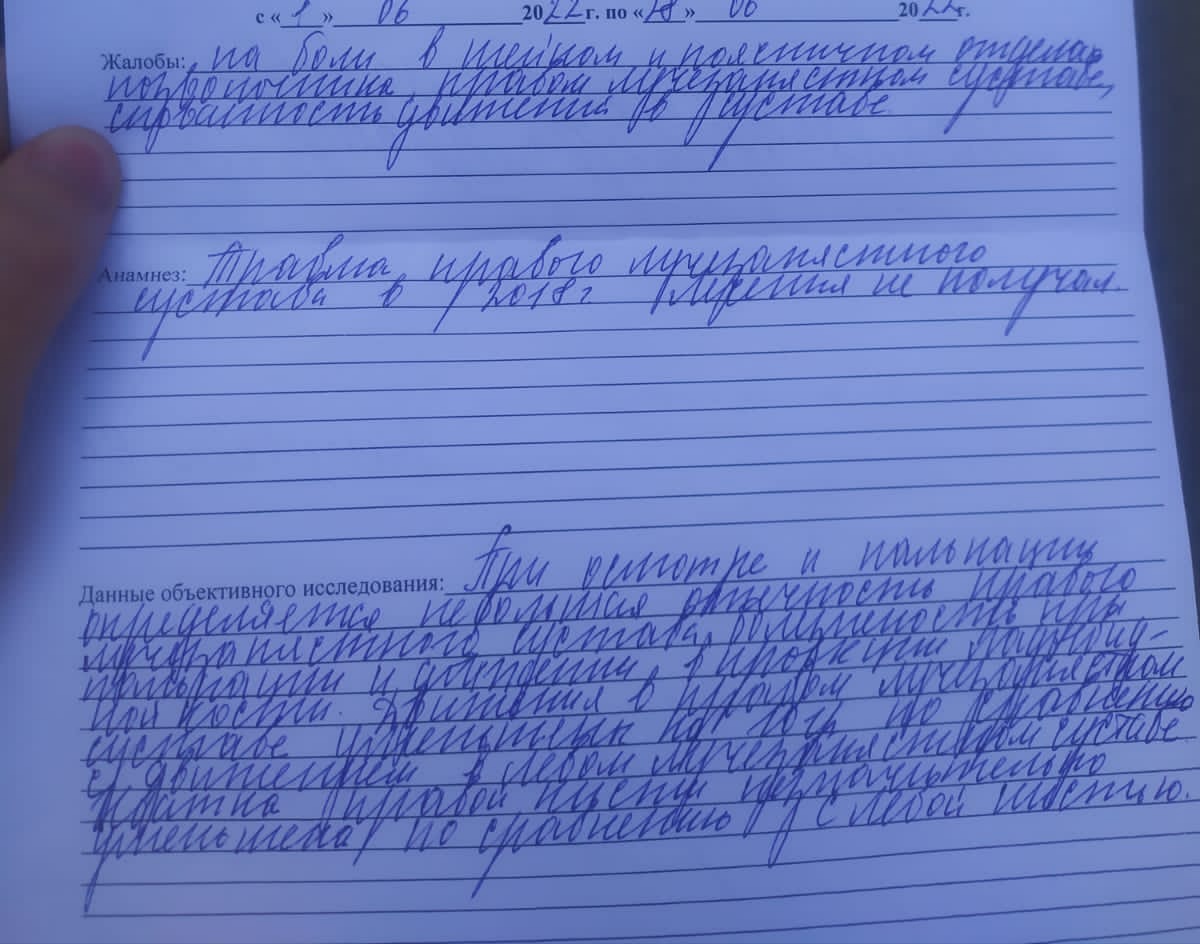 с « 1 » 06 2022 г. по «18 » 06 2022 г.
Жалобы: на боли в шейном и поясничном отделах
позвоночника, правом лучезапястном суставе,
скованность движений в суставе.
Анамнез: Травма правого лучезапястного
сустава в 2018 г Лечения не получал.
Данные объективного исследования: При осмотре и пальпации
определяется небольшая отечность правого
лучезапястного сустава, болезненость при
пальпации и движении в проекции ладьевид-
ной кости. Движения в правом лучезапястном
суставе уменьшены на 10% по сравнению
с движением в левом лучезапястном суставе.
Хватка правой кисти незначительно
уменьшена по сравнению с левой кистью.